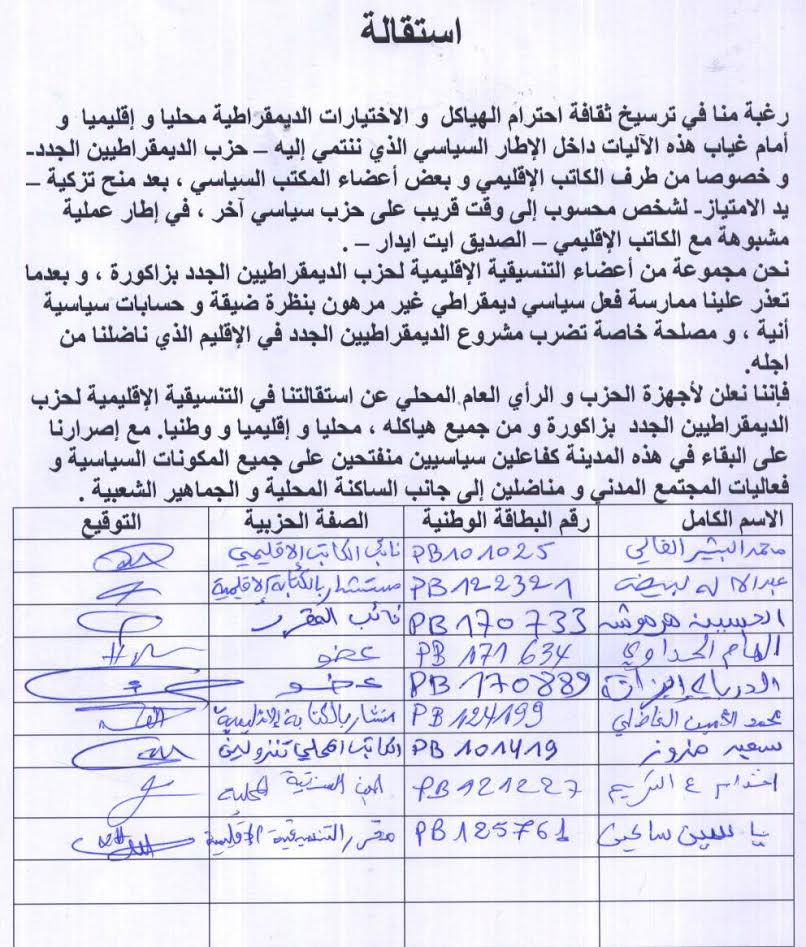 استقالة
رغبة منا في ترسيخ ثقافة احترام الهياكل و الاختيارات الديمقراطية محليا و إقليميا و
أمام غياب هذه الآليات داخل الإطار السياسي الذي ننتمي إليه – حزب الديمقراطيين الجدد-
و خصوصا من طرف الكاتب الإقليمي و بعض أعضاء المكتب السياسي ، بعد منح تزكية –
يد الامتياز- لشخص محسوب إلى وقت قريب على حزب سياسي آخر ، في إطار عملية
مشبوهة مع الكاتب الإقليمي – الصديق ايت ايدار – .
نحن مجموعة من أعضاء التنسيقية الإقليمية لحزب الديمقراطيين الجدد بزاكورة ، و بعدما
تعذر علينا ممارسة فعل سياسي ديمقراطي غير مرهون بنظرة ضيقة و حسابات سياسية
أنية ، و مصلحة خاصة تضرب مشروع الديمقراطيين الجدد في الإقليم الذي ناضلنا من
اجله.
فإننا نعلن لأجهزة الحزب و الرأي العام المحلي عن استقالتنا في التنسيقية الإقليمية لحزب
الديمقراطيين الجدد بزاكورة و من جميع هياكله ، محليا و إقليميا و وطنيا. مع إصرارنا
على البقاء في هذه المدينة كفاعلين سياسيين منفتحين على جميع المكونات السياسية و
فعاليات المجتمع المدني و مناضلين إلى جانب الساكنة المحلية و الجماهير الشعبية .
الاسم الكامل رقم البطاقة الوطنية الصفة الحزبية التوقيع
محمد البشير الفالي PB101025 نائب الكاتب الإقليمي
عبد الاله لبيضة PB122321 مستشار بالكتابة الإقليمية
الحسين هرموشة PB170733 نائب المقرر
الهام الحداوي PB171634 عضو
PB170889 عضو
محمد الفاضلي PB124199 بالكتابة الإقليمية
سعيد مزوز PB101419 الكاتب المحلي تنزولين
PB121227 المحلية
ياسين PB125761 مقرر التنسيقية الإقليمية